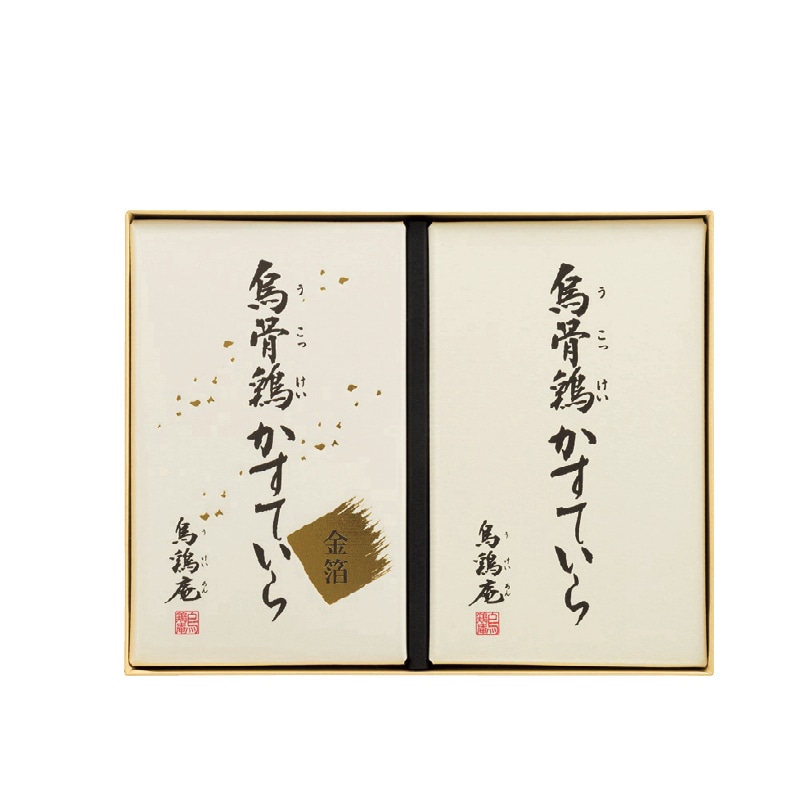 烏骨鶏かすていら
う こっ けい
金箔
烏鶏庵
う けい あん
烏骨鶏かすていら
う こっ けい
烏鶏庵
う けい あん